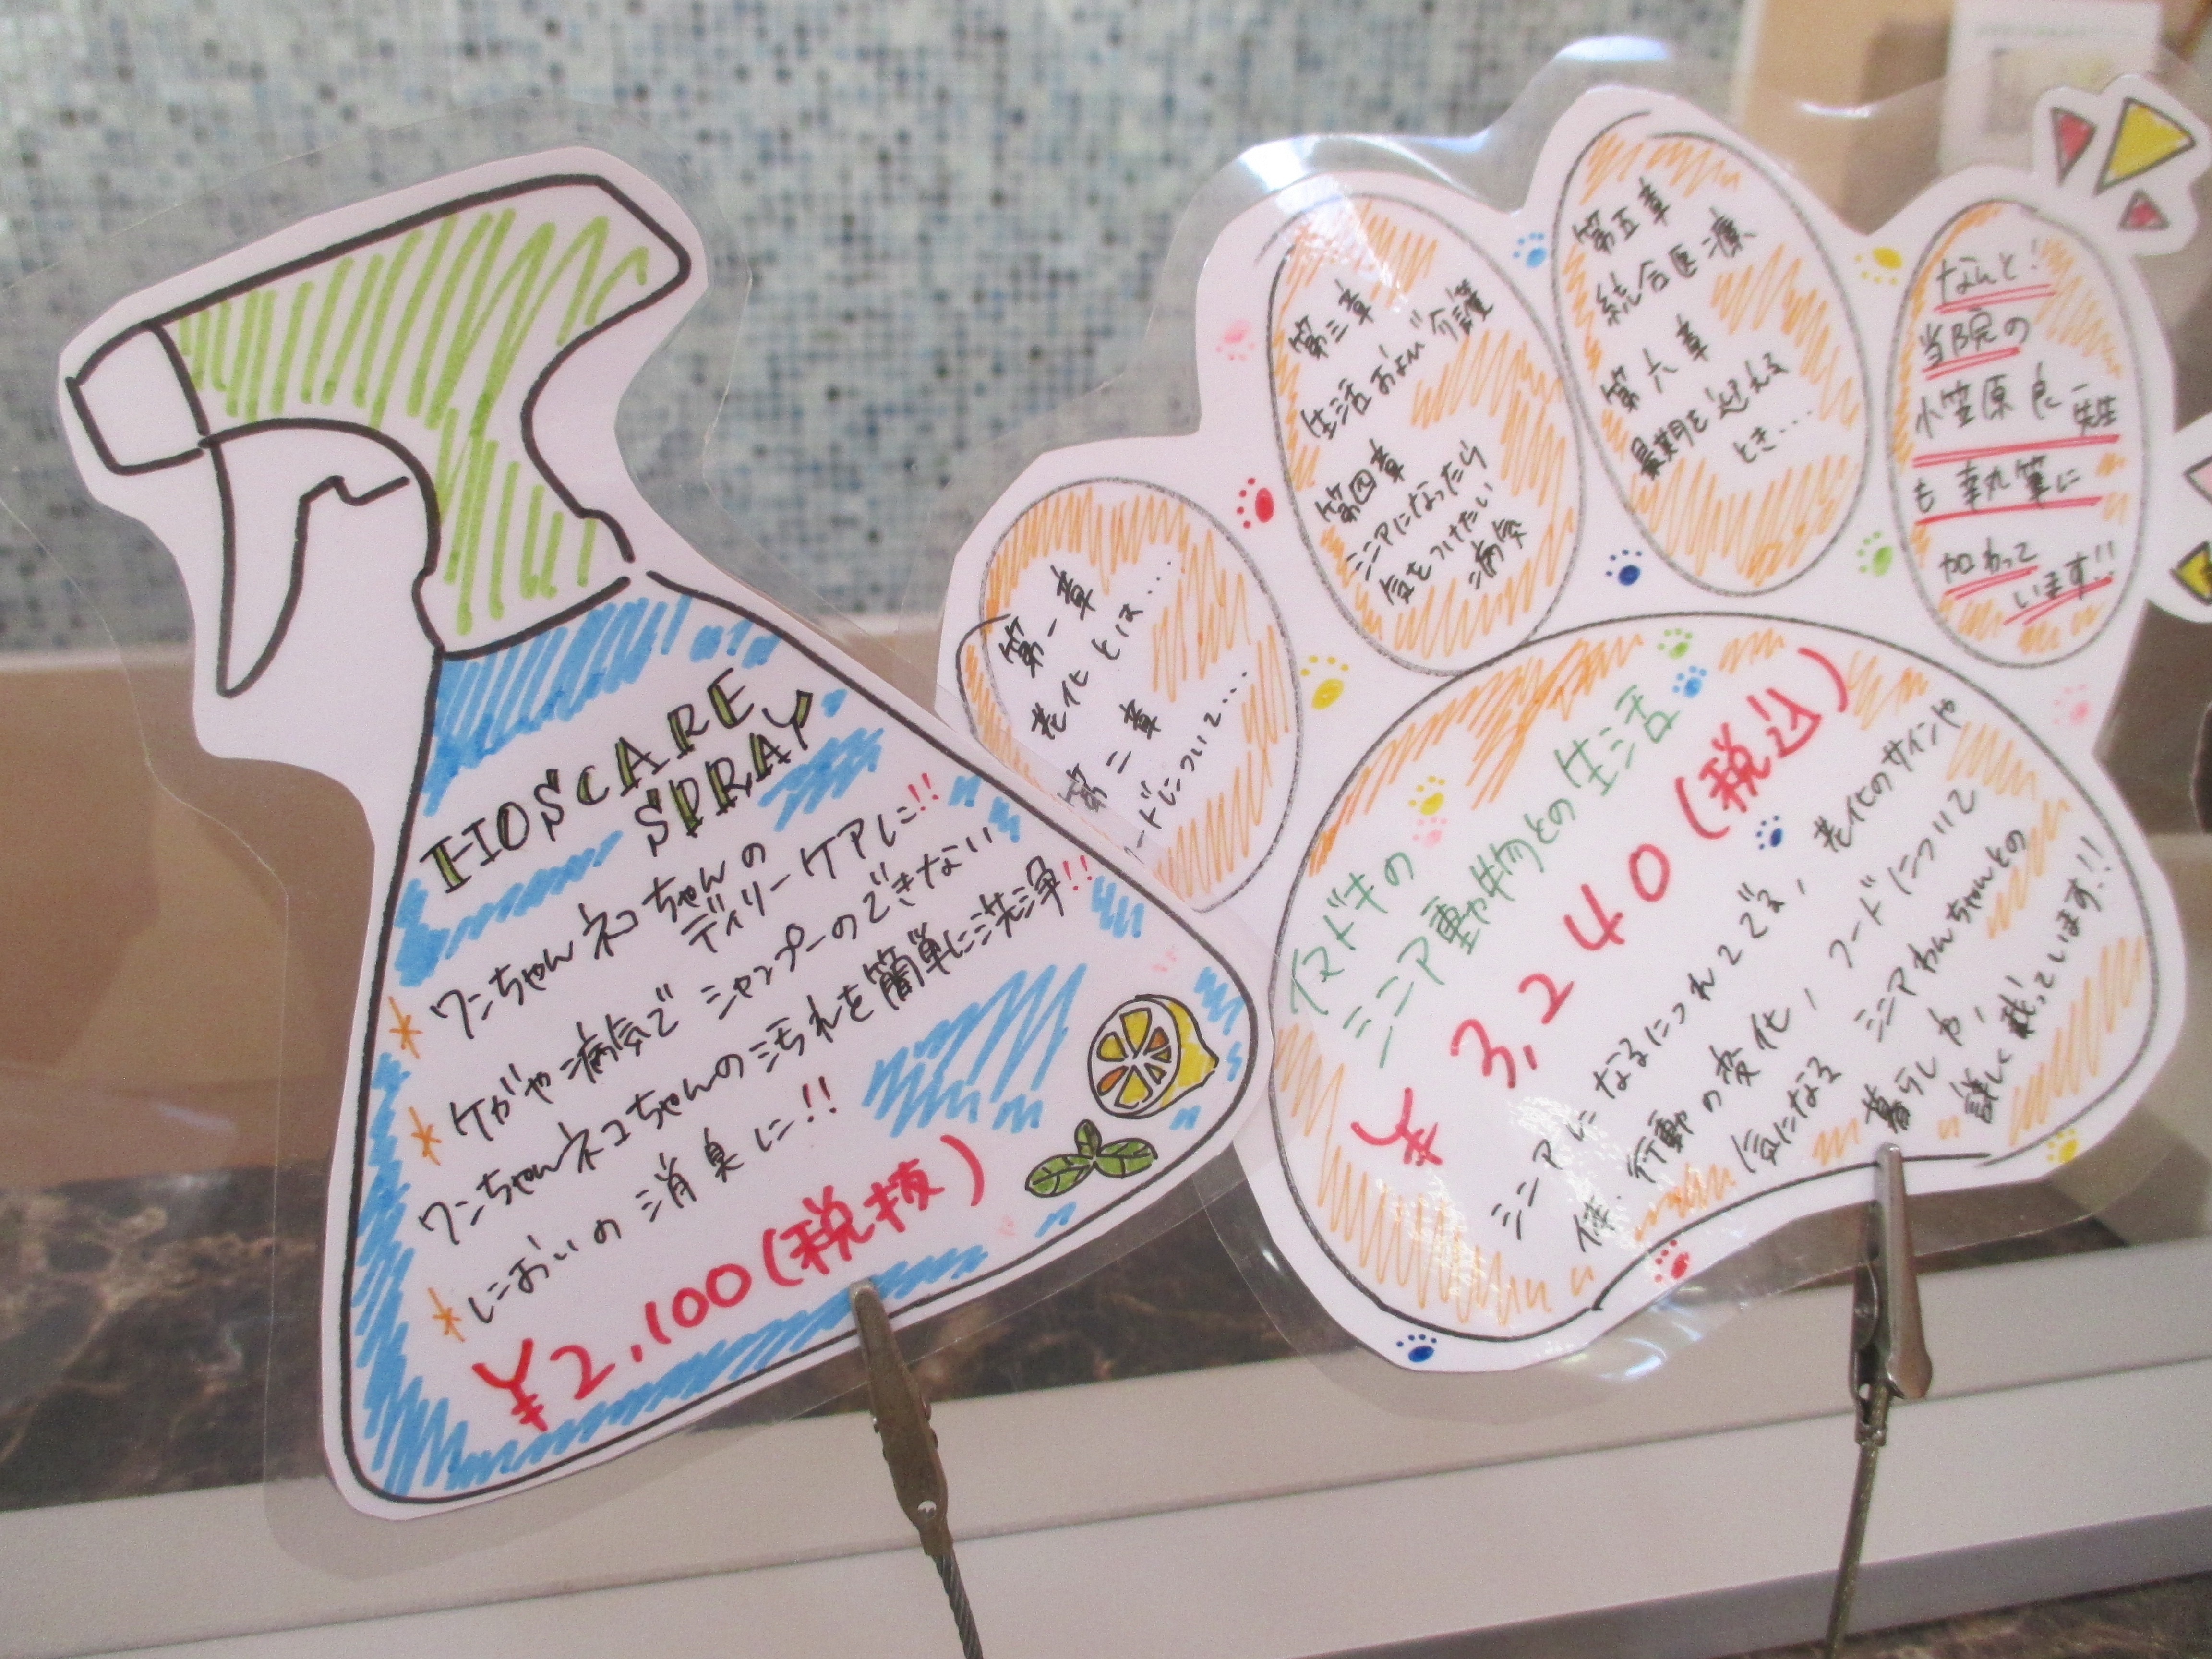 HOSCARE
SPRAY
* ワンちゃんネコちゃんの
デイリーケアに!!
* ケガや病気でシャンプーのできない
ワンちゃんネコちゃんの汚れを簡単に洗浄!!
* においの消臭に!!
¥2,100(税抜)
第一章
老化とは…
第二章
ードについて…
第三章
生活および介護
第四章
シニアになったら
気をつけたい
病気
第五章
統合医療
第六章
最期を迎える
とき…
なんと!
当院の
小笠原 良一先生
も執筆に
加わって
います!!
イマドキの
シニア動物との生活
¥3,240(税込)
シニアになるにつれてでる、老化のサインや
体、行動の変化、フードについて
気になる シニアわんちゃんとの
暮らしや、
詳しく載っています!!